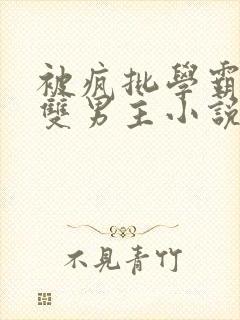 被疯批學霸
雙男主小說
不見青竹